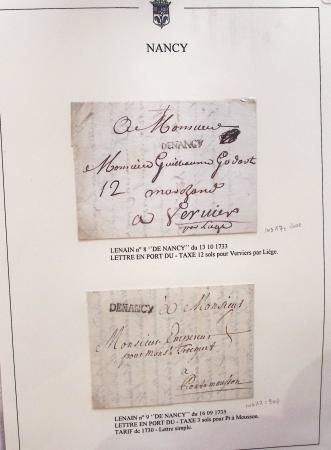 NANCY
A Monsieur
DENANCY
Monsieur Guillaume Godart
12 marchand
a Vervier
par Liege
LENAIN n° 8 "DE NANCY" du 13 10 1733
LETTRE EN PORT DU - TAXE 12 sols pour Verviers par Liége.
DENANCY
à Monsieur
Monsieur Empereur
pour Monsr
à
Pontamousson
LENAIN n° 9 "DE NANCY" du 16 09 1735
LETTRE EN PORT DU - TAXE 3 sols pour Pt à Mousson.
TARIF de 1730 - Lettre simple.